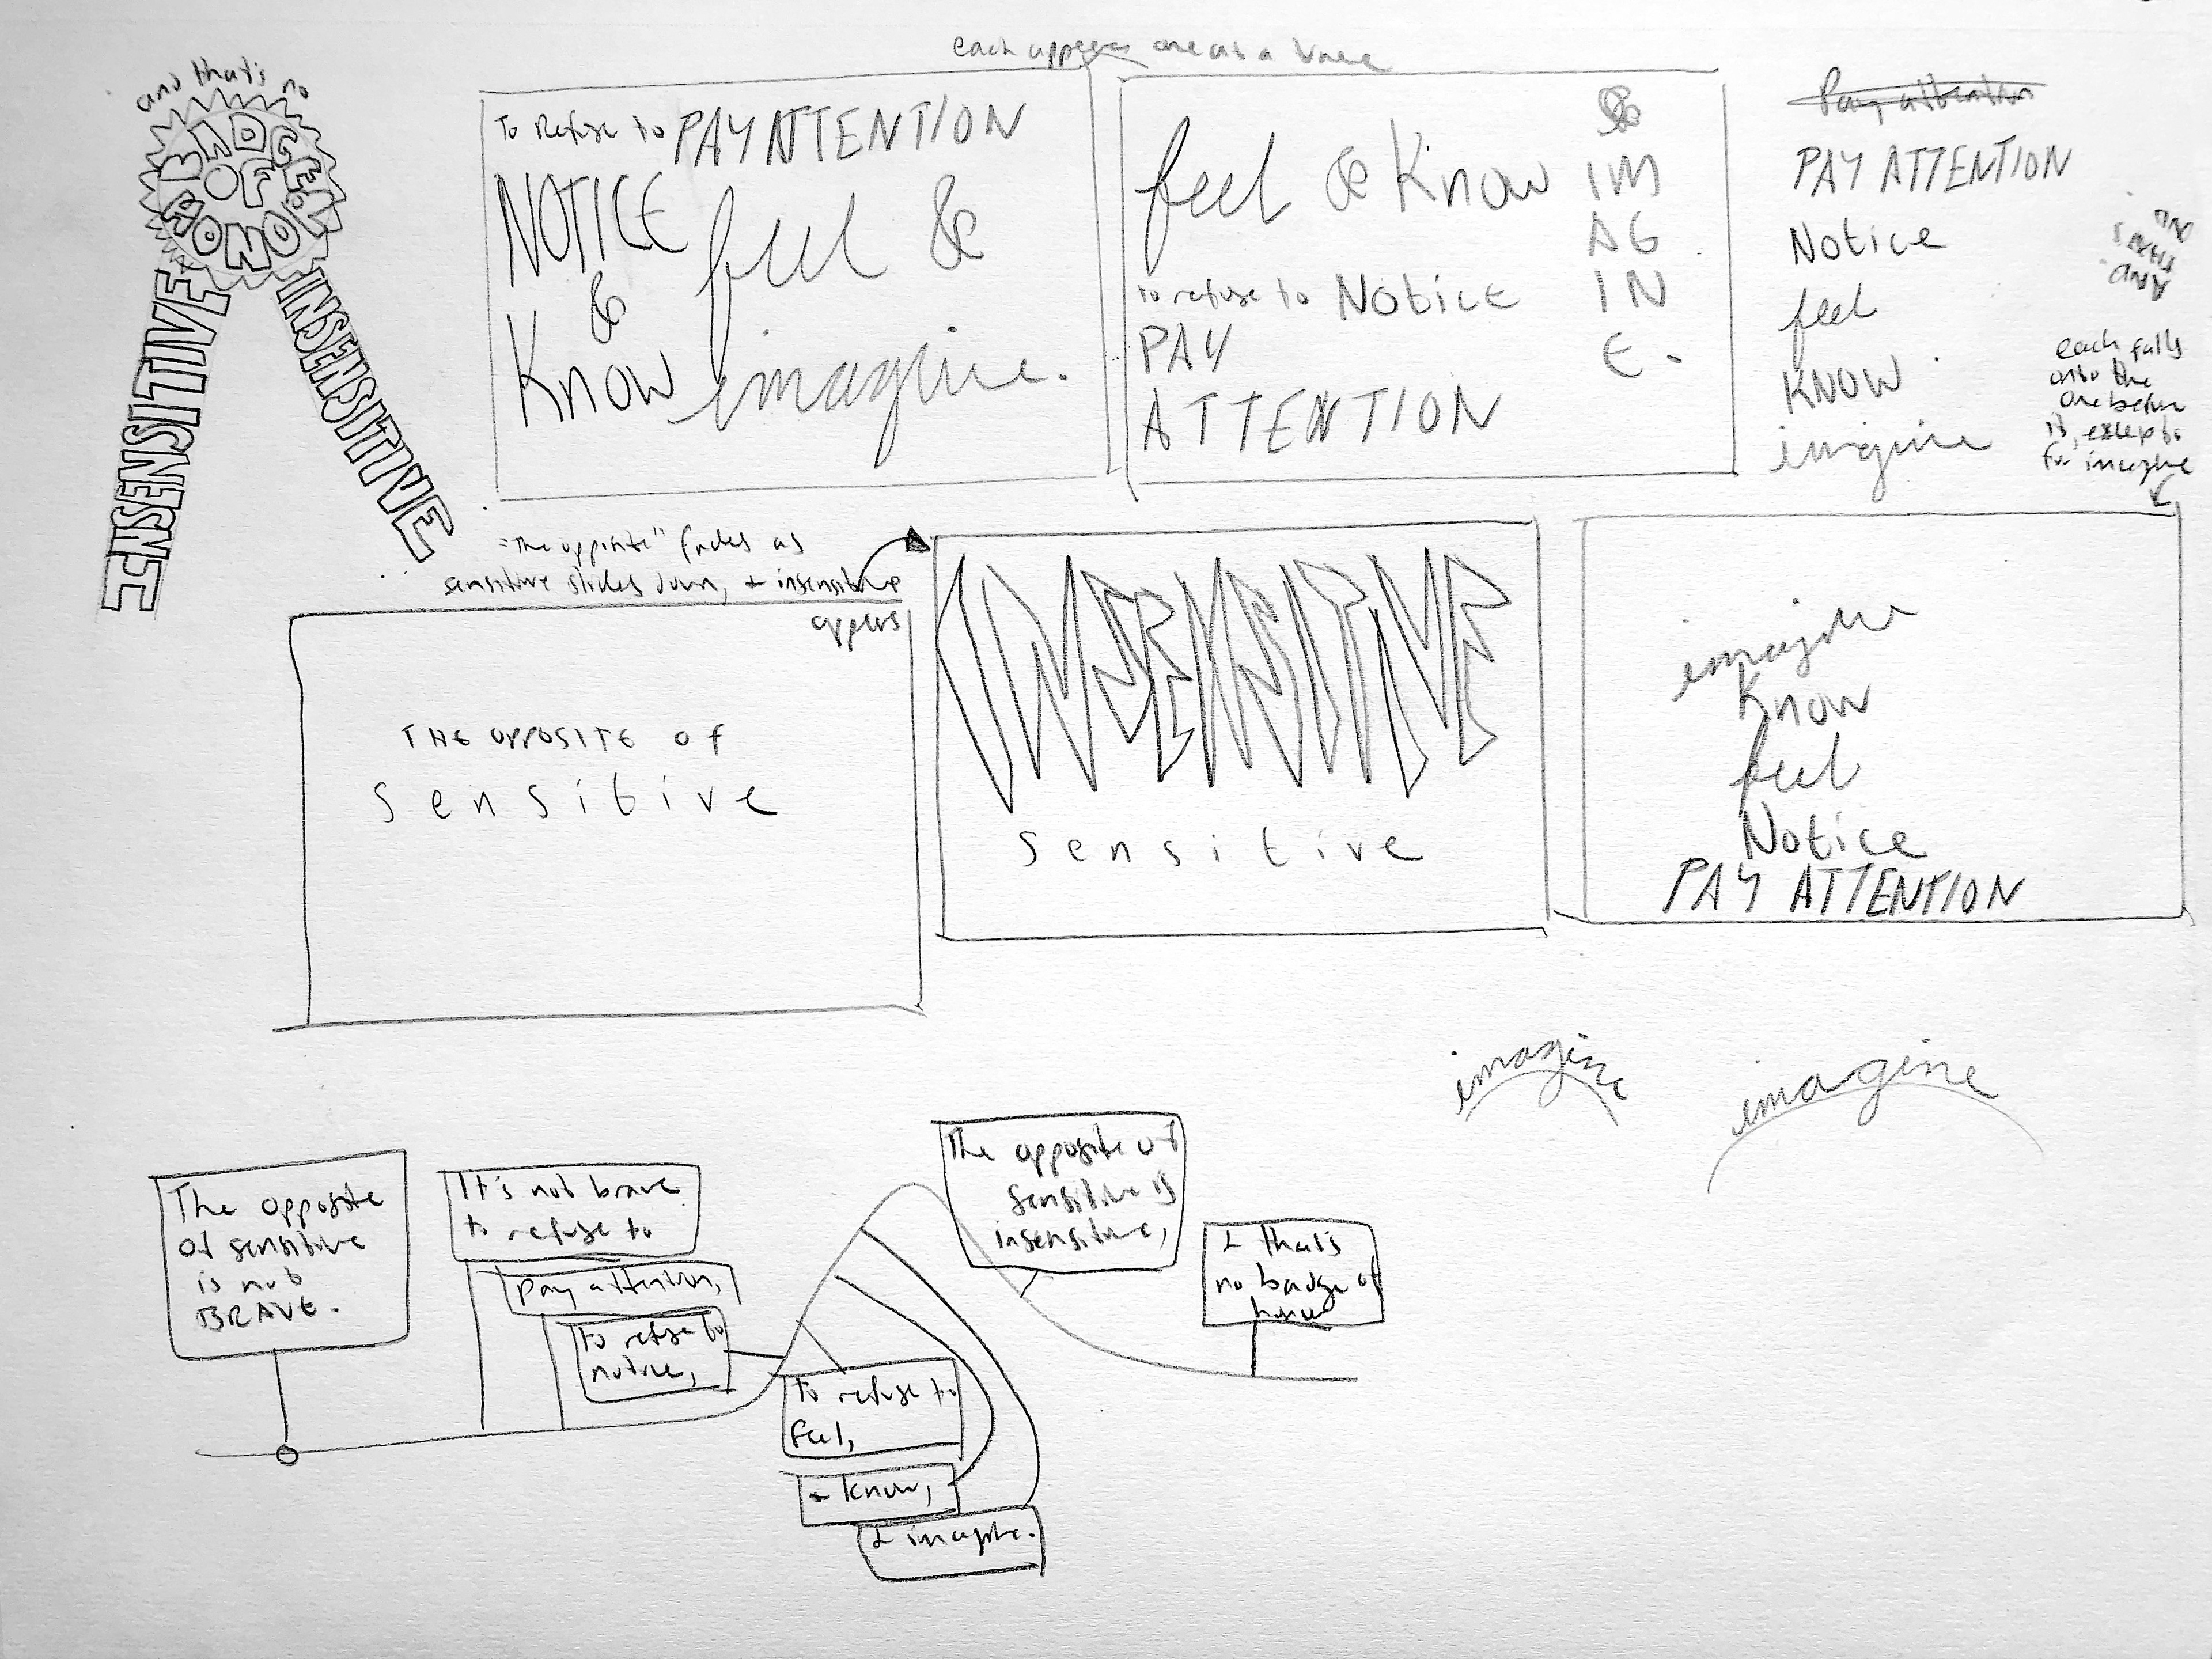 and that's no
BADGE OF HONOR.
INSENSITIVE
INSENSITIVE
each appears one at a time
To Refuse to PAY ATTENTION
NOTICE feel &
&
Know imagine.
feel & Know
to refuse to Notice
PAY
ATTENTION
&
IM
AG
IN
E.
Pay attention
PAY ATTENTION
Notice
feel
KNOW
imagine
AND
THAT'S
each falls
onto the
one before
it, except
for imagine
"The opposite" fades as
sensitive slides down, + insensitive
appears
THE OPPOSITE OF
Sensitive
INSENSITIVE
Sensitive
imagine
Know
feel
Notice
PAY ATTENTION
imagine
imagine
The opposite
of sensitive
is not
BRAVE.
It's not brave
to refuse to
pay attention,
to refuse to
notice,
to refuse to
feel,
+ know,
& imagine.
The opposite of
sensitive is
insensitive,
& that's
no badge of
honor